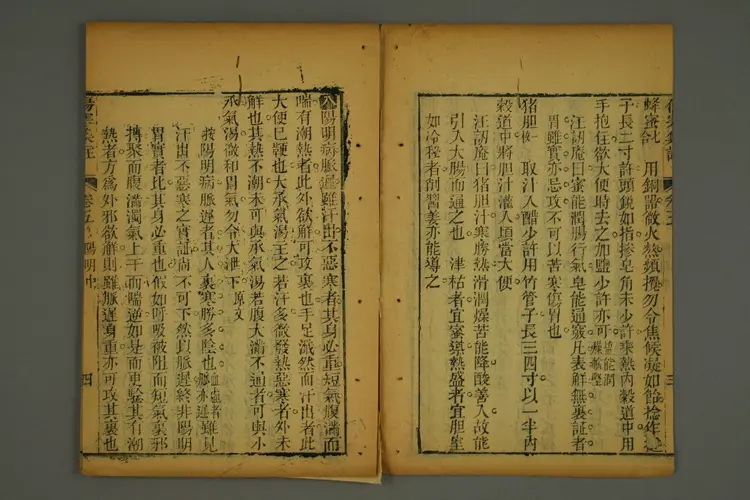 蜂蜜 用銅器微火熬頻攪勿令焦候凝如飴捻作
子長二寸許頭銳如指摻皂角末少許乘熱內穀道中用
手抱住欲大便時去之加鹽少許亦可鹽能潤燥軟堅
汪訒庵曰蜜能潤腸行氣皂能通竅凡表解無裏証者
胃雖實亦忌攻不可以苦寒傷胃也
猪胆一枚 取汁入醋少許用竹管子長三四寸以一半內
穀道中將胆汁灌入頃當大便
汪訒庵曰猪胆汁寒勝熱滑潤燥苦能降酸善入故能
引入大腸而通之也 津枯者宜蜜導熱盛者宜胆
如冷秘者削醬姜亦能導之
陽明病脈遲雖汗出不惡寒者其身必重短氣腹滿而
喘有潮熱者此外欲解可攻裏也手足濈然而汗出者此
大便已鞕也大承氣湯主之若汗多微發熱惡寒者外未
解也其熱不潮未可與承氣湯若腹大滿不通者可與小
承氣湯微和胃氣勿令大泄下原文
按陽明病脈遲者其人裏寒勝多陰也血虛者脈亦遲雖見
汗出不惡寒之實証尚不可下然以脈遲終非陽明
胃實者比其身必重也假如呼吸被阻而短氣裏邪
摶聚而腹滿濁氣上干而喘逆如是而更驗其有潮
熱者方為外邪欲解則雖脈遲身重亦可攻其裏也
卷五 陽明
四